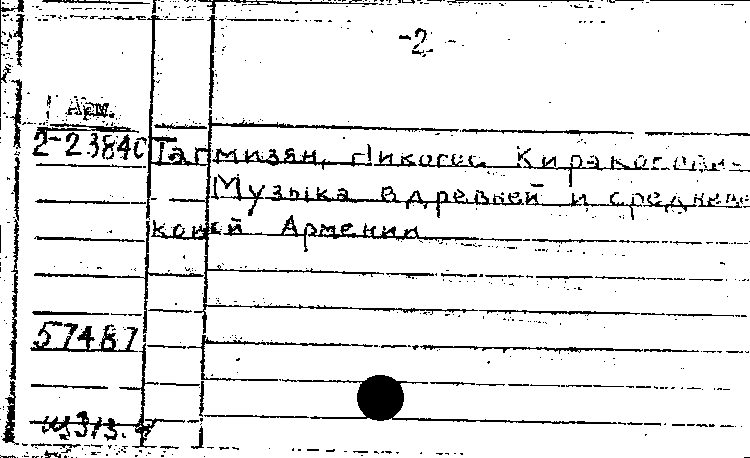 -2-
Арм.
2-23840 Тагмизян, Никогос Киракосови-
Музыка в древней и среднове
ковой Армении
57487
Щ313.4